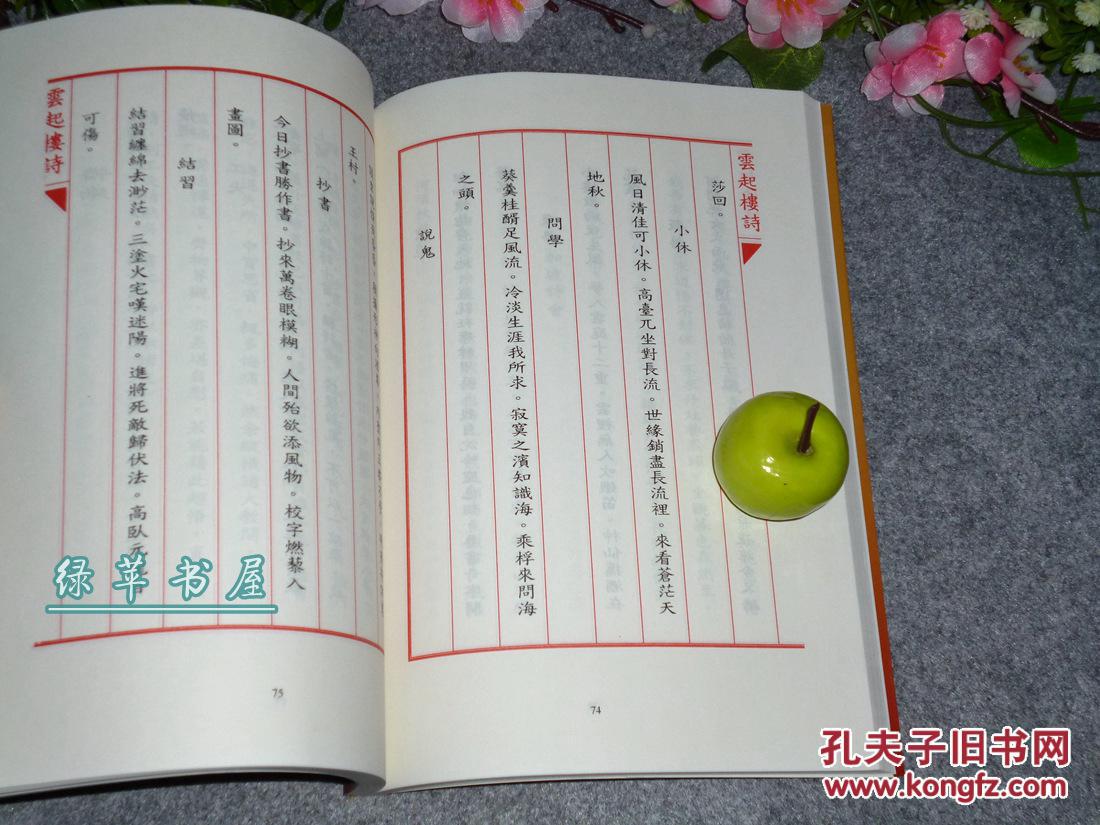 雲起樓詩
莎回。
小休
風日清佳可小休。高臺兀坐對長流。世緣銷盡長流裡。來看蒼茫天
地秋。
問學
葵羹桂醑足風流。冷淡生涯我所求。寂寞之濱知識海。乘桴來問海
之頭。
說鬼
74
王村。
抄書
今日抄書勝作書。抄來萬卷眼模糊。人間殆欲添風物。校字燃藜入
畫圖。
結習
結習纏綿去渺茫。三塗火宅嘆迷陽。進將死敵歸伏法。高臥元
可傷。
雲起樓詩
75
绿苹书屋
孔夫子旧书网
WWW.KONGFZ.COM